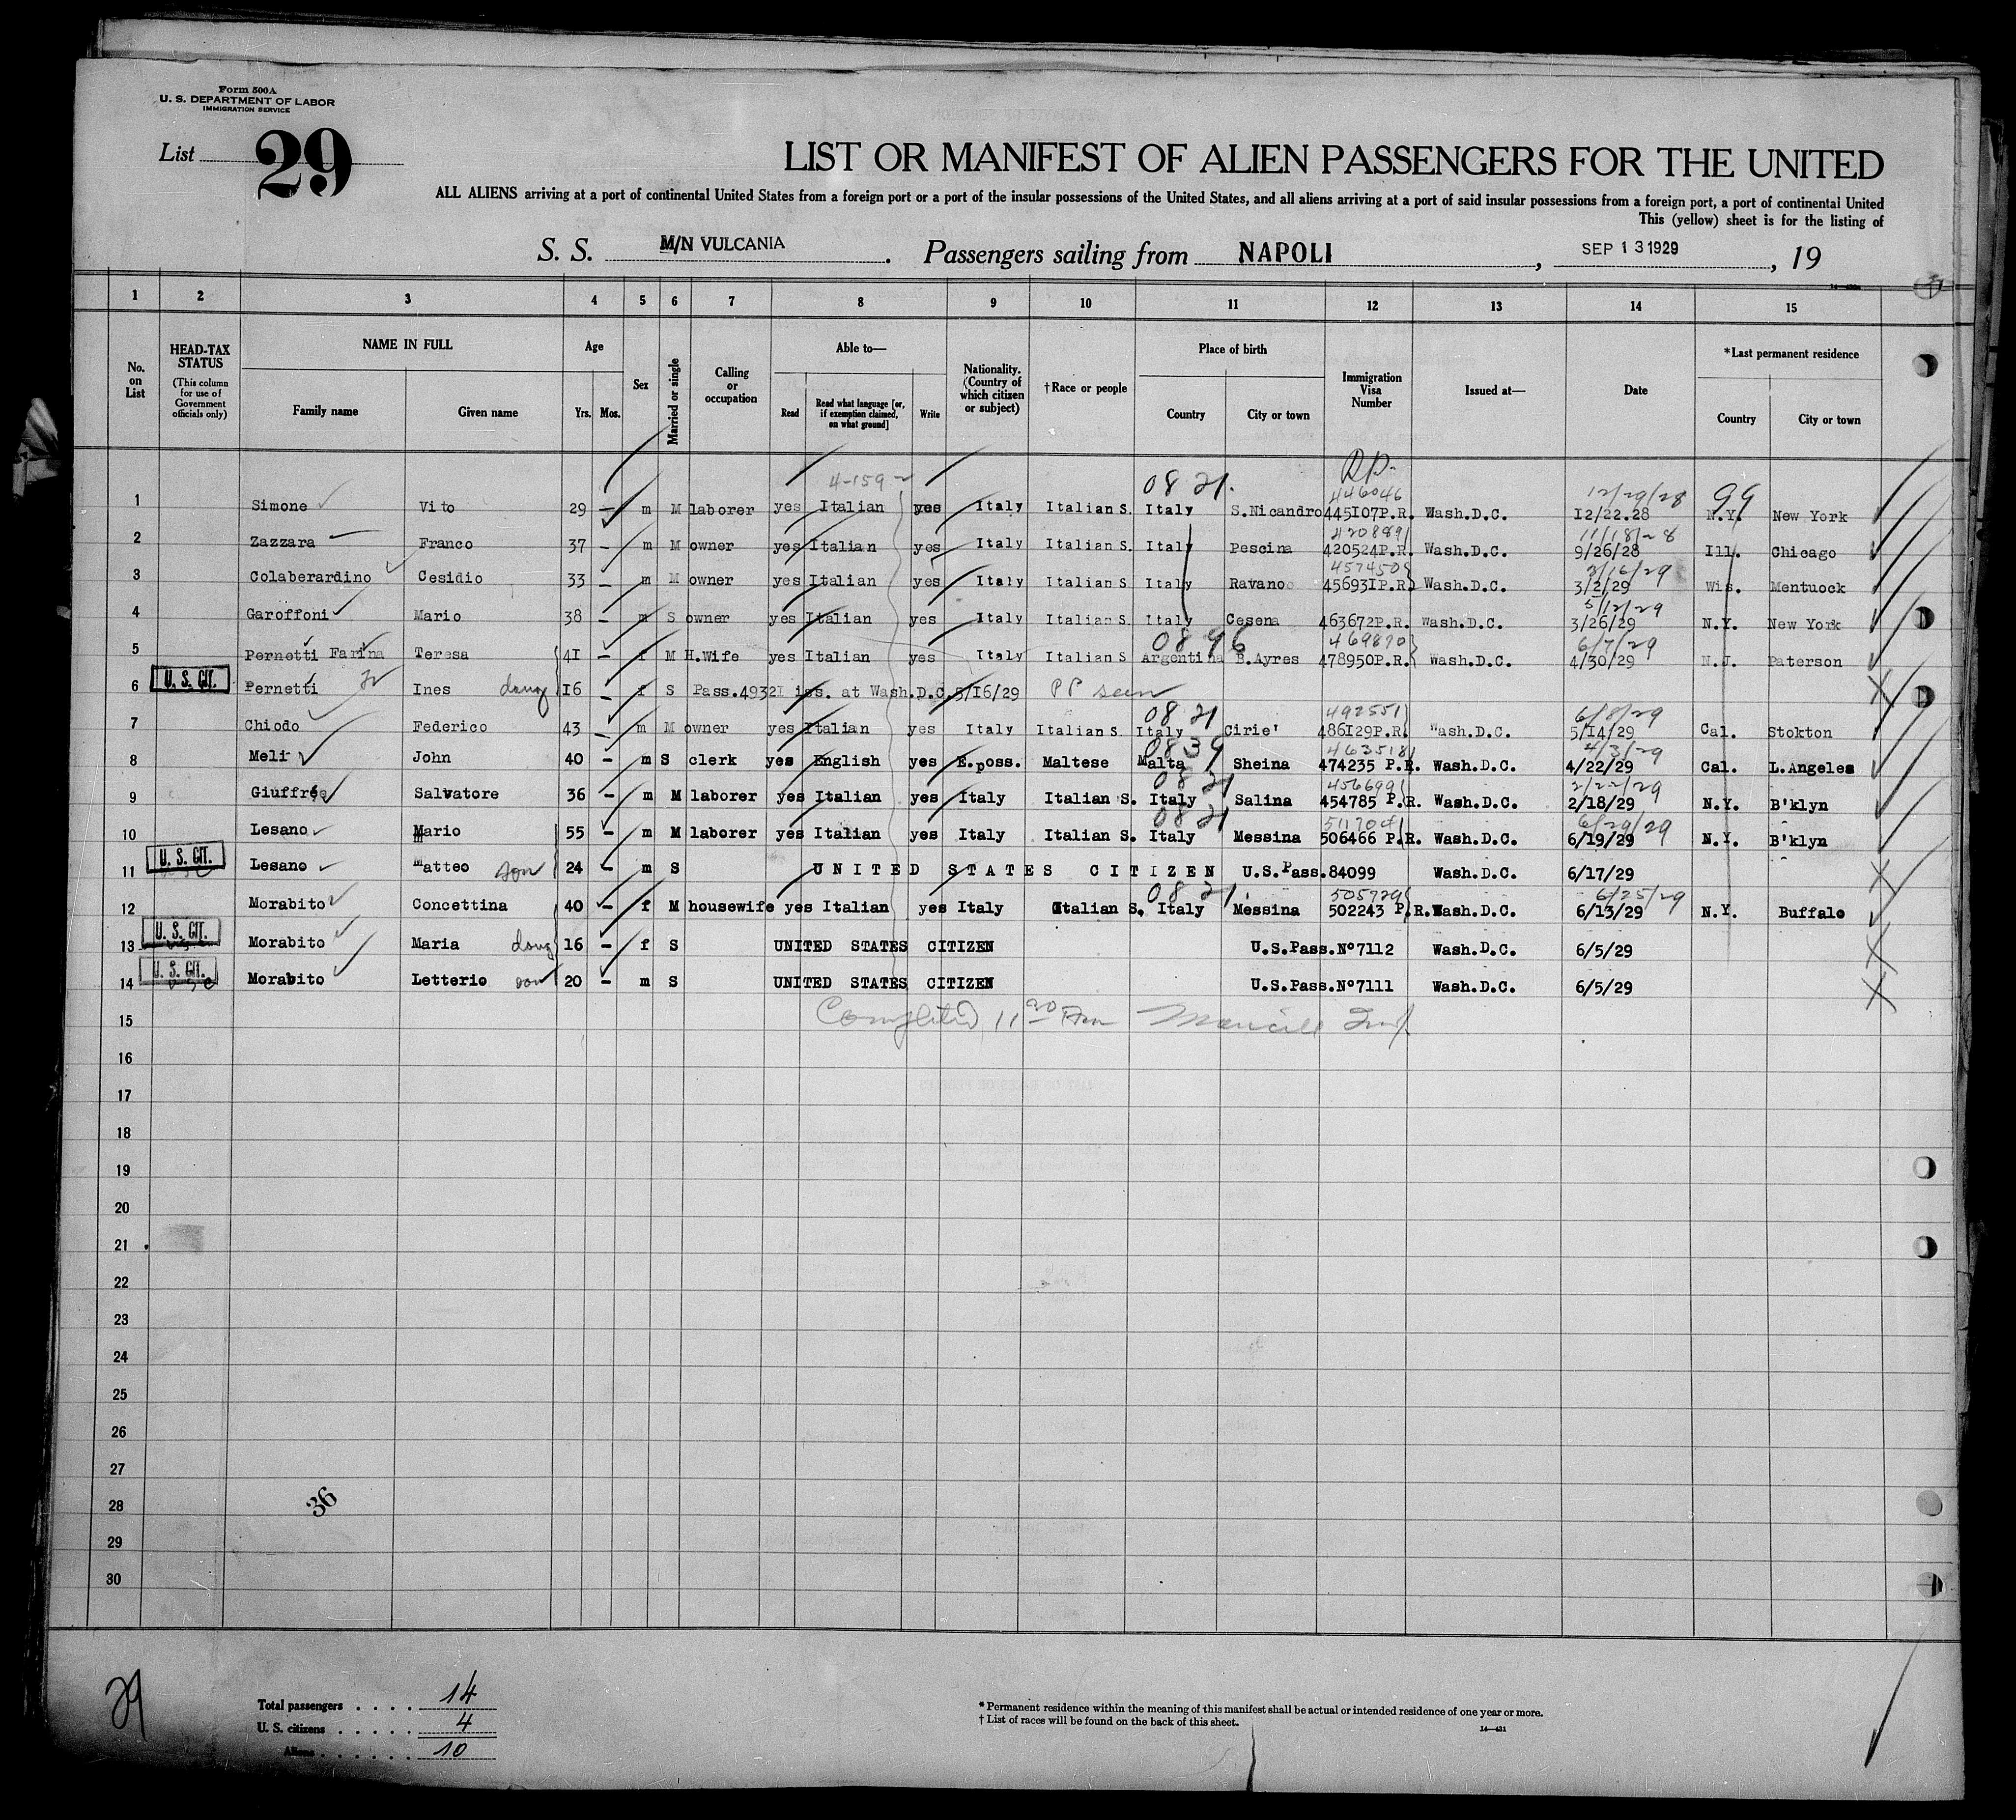 Form 500A
U. S. DEPARTMENT OF LABOR
IMMIGRATION SERVICE
List 29
LIST OR MANIFEST OF ALIEN PASSENGERS FOR THE UNITED
ALL ALIENS arriving at a port of continental United States from a foreign port or a port of the insular possessions of the United States, and all aliens arriving at a port of said insular possessions from a foreign port, a port of continental United
This (yellow) sheet is for the listing of
S. S. M/N VULCANIA. Passengers sailing from NAPOLI, SEP 13 1929, 19
1 2 3 4 5 6 7 8 9 10 11 12 13 14 15
No. on List
HEAD-TAX STATUS
(This column for use of Government officials only)
NAME IN FULL
Family name Given name
Age
Yrs. Mos.
Sex
Married or single
Calling or occupation
Able to—
Read
Read what language [or, if exemption claimed, on what ground]
Write
Nationality. (Country of which citizen or subject)
†Race or people
Place of birth
Country City or town
Immigration Visa Number
Issued at—
Date
*Last permanent residence
Country City or town
4-159 08 21. 446046 12/29/28 99
1 Simone Vito 29 – m M laborer yes Italian yes Italy Italian S. Italy S.Nicandro 445107P.R. Wash.D.C. 12/22.28 N.Y. New York
420889 11/18/28
2 Zazzara Franco 37 – m M owner yes Italian yes Italy Italian S. Italy Pescina 420524P.R. Wash.D.C. 9/26/28 Ill. Chicago
457450 3/16/29
3 Colaberardino Cesidio 33 – m M owner yes Italian yes Italy Italian S. Italy Ravano 456931P.R. Wash.D.C. 3/2/29 Wis. Mentuock
5/12/29
4 Garoffoni Mario 38 – m S owner yes Italian yes Italy Italian S. Italy Cesena 463672P.R. Wash.D.C. 3/26/29 N.Y. New York
08 96 469870 6/7/29
5 Pernetti Farina Teresa 41 – f M H.Wife yes Italian yes Italy Italian S Argentina B.Ayres 478950P.R. Wash.D.C. 4/30/29 N.J. Paterson
U. S. CIT.
6 Pernetti Ines daug 16 – f S Pass.49321 iss. at Wash.D.C. 5/16/29 PP seen
08 21 492551 6/8/29
7 Chiodo Federico 43 – m M owner yes Italian yes Italy Italian S. Italy Cirie' 486129P.R. Wash.D.C. 5/14/29 Cal. Stokton
0839 463518 4/3/29
8 Meli John 40 – m S clerk yes English yes E.poss. Maltese Malta Sheina 474235 P.R. Wash.D.C. 4/22/29 Cal. L.Angeles
08 21 456699 2/22/29
9 Giuffrè Salvatore 36 – m M laborer yes Italian yes Italy Italian S. Italy Salina 454785 P.R. Wash.D.C. 2/18/29 N.Y. B'klyn
08 21 511704 6/29/29
10 Lesano Mario 55 – m M laborer yes Italian yes Italy Italian S. Italy Messina 506466 P.R. Wash.D.C. 6/19/29 N.Y. B'klyn
U. S. CIT.
11 Lesano Matteo son 24 – m S UNITED STATES CITIZEN U.S.Pass.84099 Wash.D.C. 6/17/29
08 21. 505729 6/25/29
12 Morabito Concettina 40 – f M housewife yes Italian yes Italy Italian S. Italy Messina 502243 P.R. Wash.D.C. 6/13/29 N.Y. Buffalo
U. S. CIT.
13 Morabito Maria daug 16 – f S UNITED STATES CITIZEN U.S.Pass.Nº7112 Wash.D.C. 6/5/29
U. S. CIT.
14 Morabito Letterio son 20 – m S UNITED STATES CITIZEN U.S.Pass.Nº7111 Wash.D.C. 6/5/29
15 Completed 11
16
17
18
19
20
21
22
23
24
25
26
27
28 36
29
30
29
Total passengers . . . . 14
U. S. citizens . . . . . 4
Aliens . . . . . . 10
* Permanent residence within the meaning of this manifest shall be actual or intended residence of one year or more.
† List of races will be found on the back of this sheet.
14—431